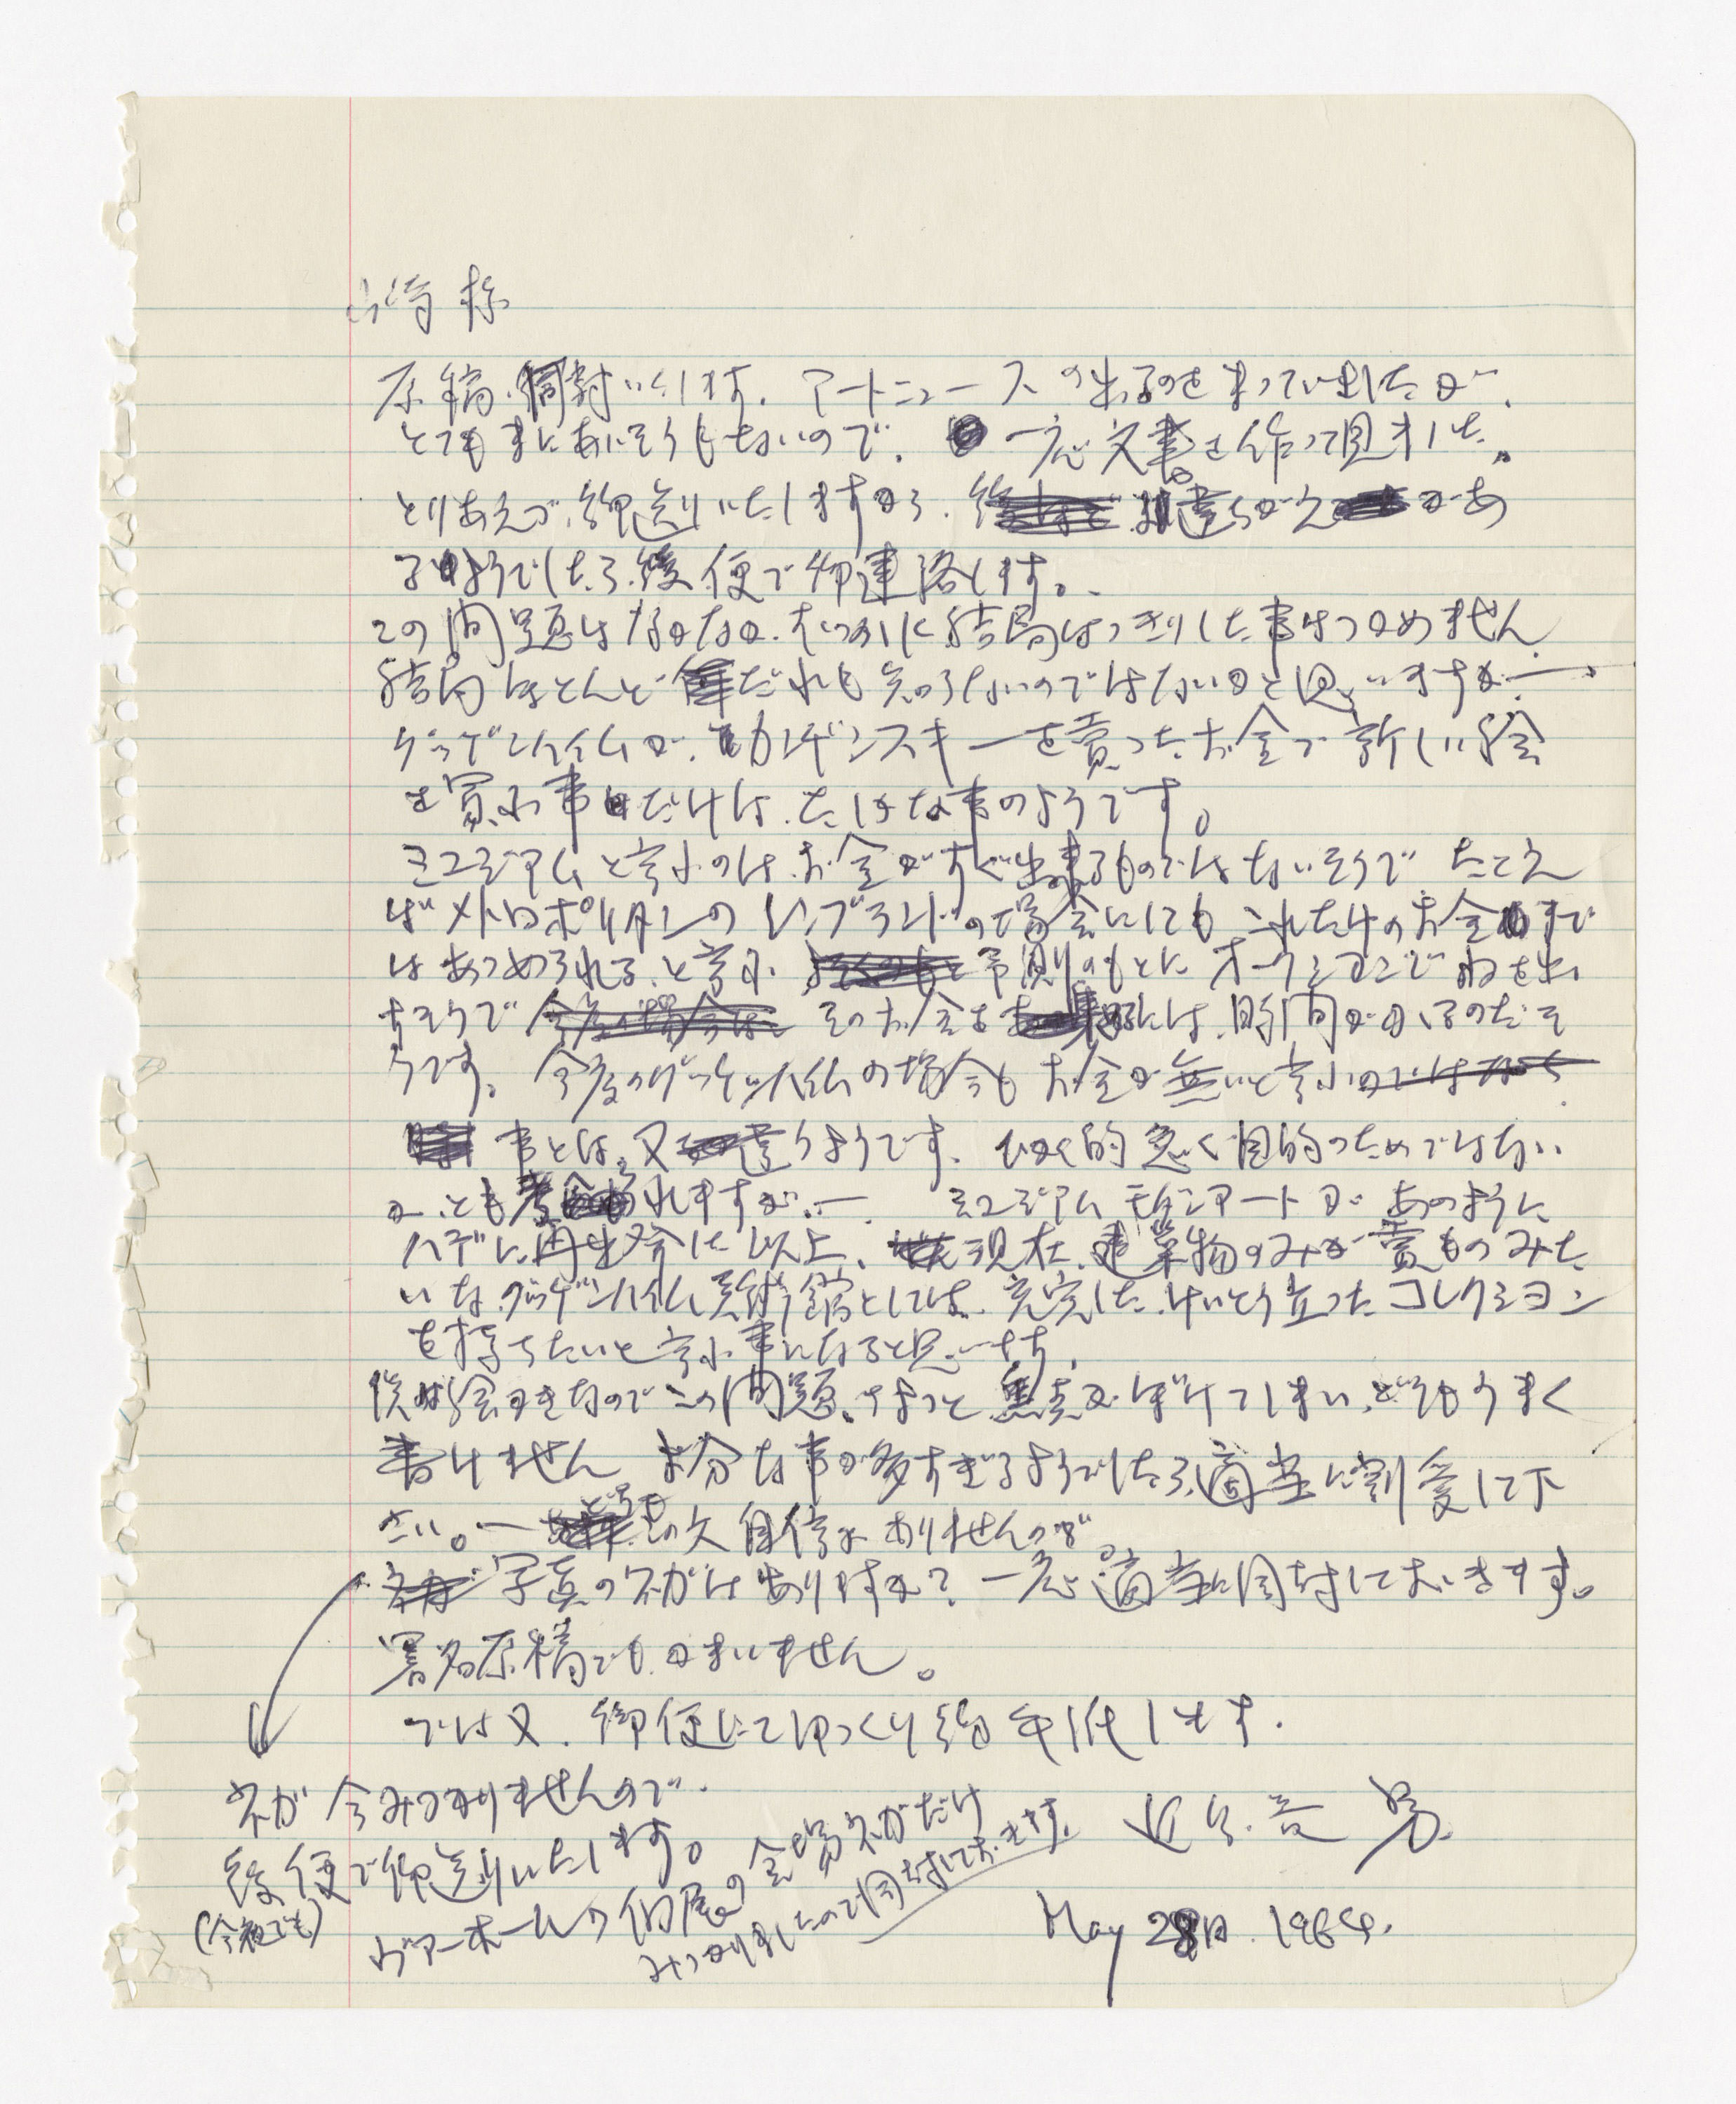 山崎様
原稿、同封いたします。アートニュースの出るのをまっていましたが、
とてもまにあいそうもないので、一応文書を作って見ました。
とりあえず、御送りいたしますから、まちがえがあ
るようでしたら、後便で御連絡します。
この問題はなかなか、結局はっきりした事はつかめません
結局ほとんどだれも知らないのではないかと思いますが ―
グッゲンハイムが、カンデンスキーを売ったお金で新しい絵
を買ふ事だけは、たしかな事のようです。
ミユジアムと言ふのはお金がすぐ出来るものではないそうで たとえ
ばメトロポリタンのレンブランドの場合にしても これだけのお金まで
はあつめられる、と言ふ 予測のもとに オークションでねを出
すそうで そのお金を には、時間がかゝるのだそ
うです。今度のグッゲンハイムの場合も お金が無いと言ふ
事とは、又違うようです。 目的のためではない
かとも考えられますが、― ミユジアムモダンアートが あのように
ハデに再出発した以上、現在、建築物のみが売ものみた
いな、グッゲンハイム美術館としては、充実した、けいとう立ったコレクション
を持ちたいと言ふ事になると思います。
僕は絵かきなのでこの問題、ちょっと焦点がぼけてしまい、どうもうまく
書けません 余分な事が多すぎるようでしたら、適当に割愛して下
さい。― どうもこの文自信がありませんので
写真のネガは ありますか? 一応適当に同封しておきます。
署名原稿でも、かまいません。
では又、御便にてゆっくり 致します.
ネガ今みつかりませんので.
後便で御送りいたします。
(今夜でも)
ヴァーホールの 個展の会場ネガだけ
みつかりましたので同封しておきます。
近 男
May 28日. 1964.